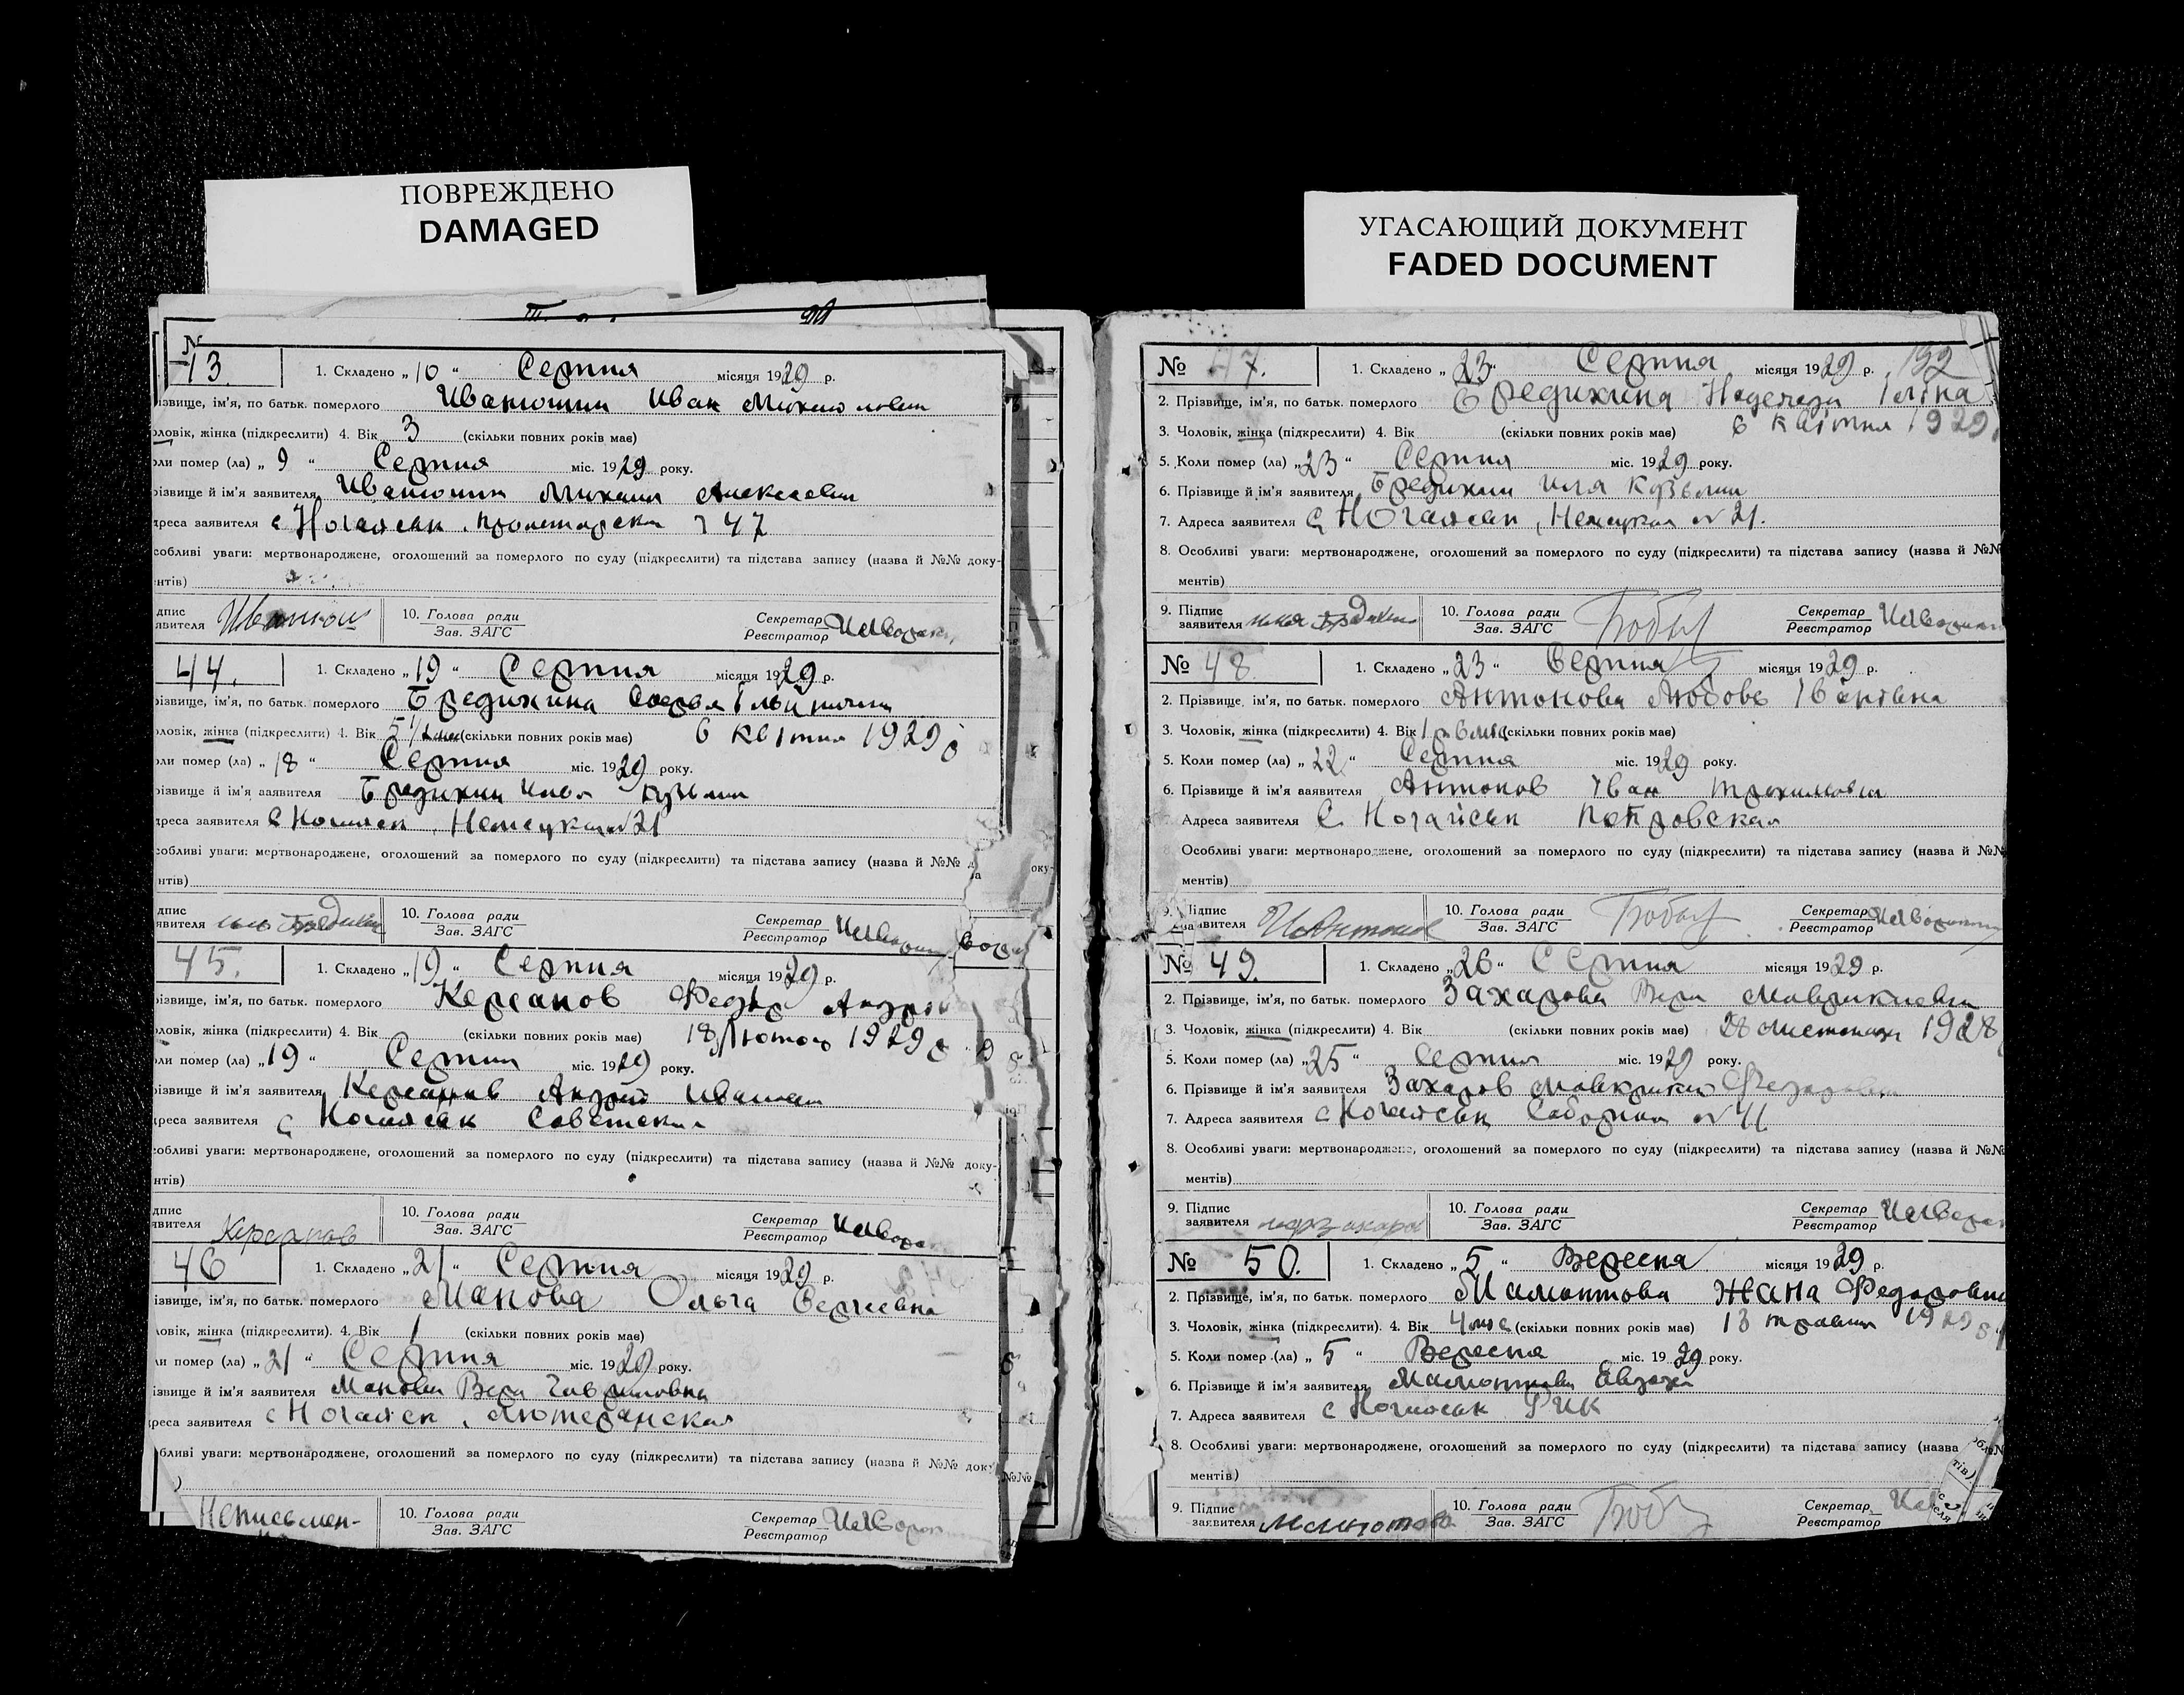 ПОВРЕЖДЕНО
DAMAGED
УГАСАЮЩИЙ ДОКУМЕНТ
FADED DOCUMENT
№
43.
1. Складено „ 10 “ Серпня місяця 1929 р.
ізвище, ім'я, по батьк. померлого Иванюшин Иван
ловік, жінка (підкреслити) 4. Вік 3 (скільки повних років має)
оли помер (ла) „ 9 “ Серпня міс. 1929 року.
різвище й ім'я заявителя Иванюшин Михаил Алексеевич
дреса заявителя с Ногайськ, 47
собливі уваги: мертвонароджене, оголошений за померлого по суду (підкреслити) та підстава запису (назва й №№ доку-
нтів)
дпис
явителя
10. Голова ради
Зав. ЗАГС
Секретар
Реєстратор
44.
1. Складено „ 19 “ Серпня місяця 1929 р.
різвище, ім'я, по батьк. померлого Бредихина
ловік, жінка (підкреслити) 4. Вік 5 1/2 (скільки повних років має) 6 квітня 1929 р
оли помер (ла) „ 18 “ Серпня міс. 1929 року.
різвище й ім'я заявителя Бредихин Илья
дреса заявителя с Ногайськ, Немецкая № 21
собливі уваги: мертвонароджене, оголошений за померлого по суду (підкреслити) та підстава запису (назва й №№
нтів)
дпис
явителя
10. Голова ради
Зав. ЗАГС
Секретар
Реєстратор
45.
1. Складено „ 19 “ Серпня місяця 1929 р.
різвище, ім'я, по батьк. померлого Керсанов Федір
ловік, жінка (підкреслити) 4. Вік (скільки повних років має) 18 Лютого 1929 р
оли помер (ла) „ 19 “ Серпня міс. 1929 року.
різвище й ім'я заявителя Керсанов Андрій Иванович
дреса заявителя с Ногайськ Советская
собливі уваги: мертвонароджене, оголошений за померлого по суду (підкреслити) та підстава запису (назва й №№ доку-
нтів)
дпис
явителя Керсанов
10. Голова ради
Зав. ЗАГС
Секретар
Реєстратор
46
1. Складено „ 21 “ Серпня місяця 1929 р.
ізвище, ім'я, по батьк. померлого Манова Ольга Сергеевна
ловік, жінка (підкреслити). 4. Вік 1 (скільки повних років має)
ли помер (ла) „ 21 “ Серпня міс. 1929 року.
ізвище й ім'я заявителя Манова Вера Гавриловна
реса заявителя с Ногайск, Лютеранская
обливі уваги: мертвонароджене, оголошений за померлого по суду (підкреслити) та підстава запису (назва й №№ доку
)
Неписьмен-
10. Голова ради
Зав. ЗАГС
Секретар
Реєстратор
№ 47.
1. Складено „ 23 “ Серпня місяця 1929 р. 192
2. Прізвище, ім'я, по батьк. померлого Бредихина Надежда
3. Чоловік, жінка (підкреслити) 4. Вік (скільки повних років має) 6 квітня 1929
5. Коли помер (ла) „ 23 “ Серпня міс. 1929 року.
6. Прізвище й ім'я заявителя Бредихин Илья Кузьмич
7. Адреса заявителя с Ногайськ, Немецкая № 21.
8. Особливі уваги: мертвонароджене, оголошений за померлого по суду (підкреслити) та підстава запису (назва й №№
ментів)
9. Підпис
заявителя
10. Голова ради
Зав. ЗАГС
Секретар
Реєстратор
№ 48
1. Складено „ 23 “ Серпня місяця 1929 р.
2. Прізвище, ім'я, по батьк. померлого Антонова Любовь Іванівна
3. Чоловік, жінка (підкреслити) 4. Вік (скільки повних років має)
5. Коли помер (ла) „ 22 “ Серпня міс. 1929 року.
6. Прізвище й ім'я заявителя Антонов Іван Трохимович
Адреса заявителя С. Ногайськ Петровская
Особливі уваги: мертвонароджене, оголошений за померлого по суду (підкреслити) та підстава запису (назва й №№
ментів)
9. Підпис
заявителя И Антонов
10. Голова ради
Зав. ЗАГС
Секретар
Реєстратор
№ 49.
1. Складено „ 26 “ Серпня місяця 1929 р.
2. Прізвище, ім'я, по батьк. померлого Захарова Вера
3. Чоловік, жінка (підкреслити) 4. Вік (скільки повних років має) 28 Листопада 1928
5. Коли помер (ла) „ 25 “ Серпня міс. 1929 року.
6. Прізвище й ім'я заявителя Захаров
7. Адреса заявителя с Ногайськ Соборная №
8. Особливі уваги: мертвонароджене, оголошений за померлого по суду (підкреслити) та підстава запису (назва й №№
ментів)
9. Підпис
заявителя
10. Голова ради
Зав. ЗАГС
Секретар
Реєстратор
№ 50.
1. Складено „ 5 “ Вересня місяця 1929 р.
2. Прізвище, ім'я, по батьк. померлого Мамонтова Жана
3. Чоловік, жінка (підкреслити). 4. Вік 4 міс (скільки повних років має) 13 травня 1929
5. Коли помер (ла) „ 5 “ Вересня міс. 1929 року.
6. Прізвище й ім'я заявителя Мамонтова
7. Адреса заявителя с Ногайськ РИК
8. Особливі уваги: мертвонароджене, оголошений за померлого по суду (підкреслити) та підстава запису (назва
ментів)
9. Підпис
заявителя Мамонтова
10. Голова ради
Зав. ЗАГС
Секретар
Реєстратор